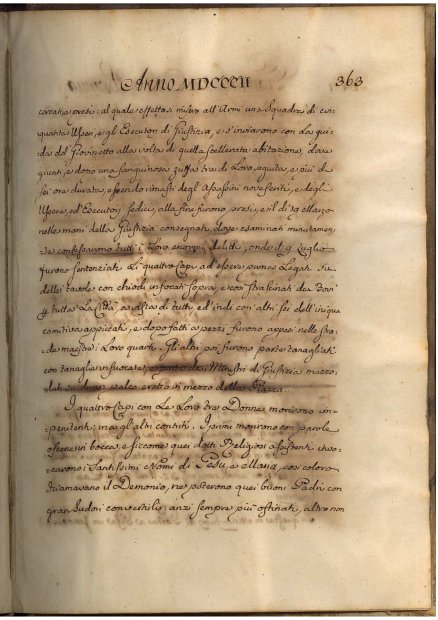 Anno MDCCCII 363
presi: al quale effetto si misero all'Armi una Squadra di cin-
quanta Usseri, e gli Esecutori di Giustizia, e s'inviarono con la gui-
da del Giovinetto alla volta di quella scellerata abitazione, dove
giunti, e dopo una sanguinosa zuffa tra di Loro seguita, e più di
sei ore durata, essendo rimasti degl'Assassini nove feriti, e degli
Usseri, ed Esecutori sedici, alla fine furono presi, e il dì 19 Marzo
nelle mani della Giustizia consegnati, dove esaminati minutamen-
te confessarono tutti i Loro enormi delitti, onde il 9 Luglio
furono sentenziati Li quattro Capi ad essere prima Legati su
delle tavole con chiodi infocati sopra, e così strascinati da Bovi
p tutta La Città a vista di tutti, ed indi con altri sei dell'iniqua
comitiva appiccati, e dopo fatti a pezzi furono appesi nelle stra-
de maestre i Loro quarti. Gli altri poi furono parte tanagliati
con tanaglie infuocate, e parte da Ministri di Giustizia mazzo-
lati palco eretto in mezzo della Piazza.
I quattro Capi con Le Loro tre Donne morirono im-
penitenti; ma gli altri contriti. I primi morirono con parole
oscene in bocca, e siccome quei dotti Religiosi assistenti invo-
cavano i Santissimi Nomi di Gesù, e Maria, così coloro
chiamavano il Demonio, ne poterono quei buoni Padri con
gran sudori convertirli: anzi sempre più ostinati, altro non